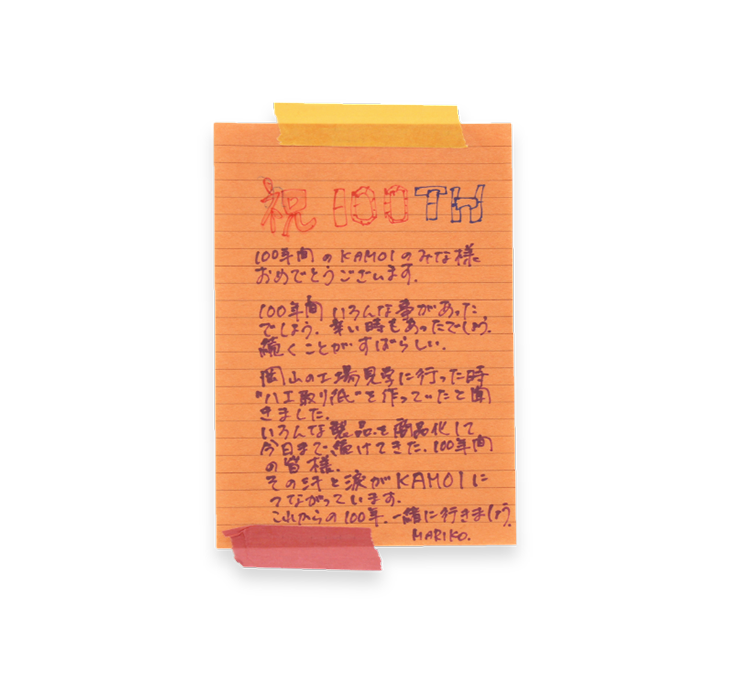 祝 100TH
100年間のKAMOIのみな様
おめでとうございます。
100年間いろんな事があった
でしょう。辛い時もあったでしょう。
続くことがすばらしい。
岡山の工場見学に行った時
"ハエ取り紙"を作っていたと聞
きました。
いろんな製品を商品化して
今日まで続けてきた。100年間
の皆様。
その汗と涙がKAMOIに
つながっています。
これからの100年、一緒に行きましょう。
MARIKO.